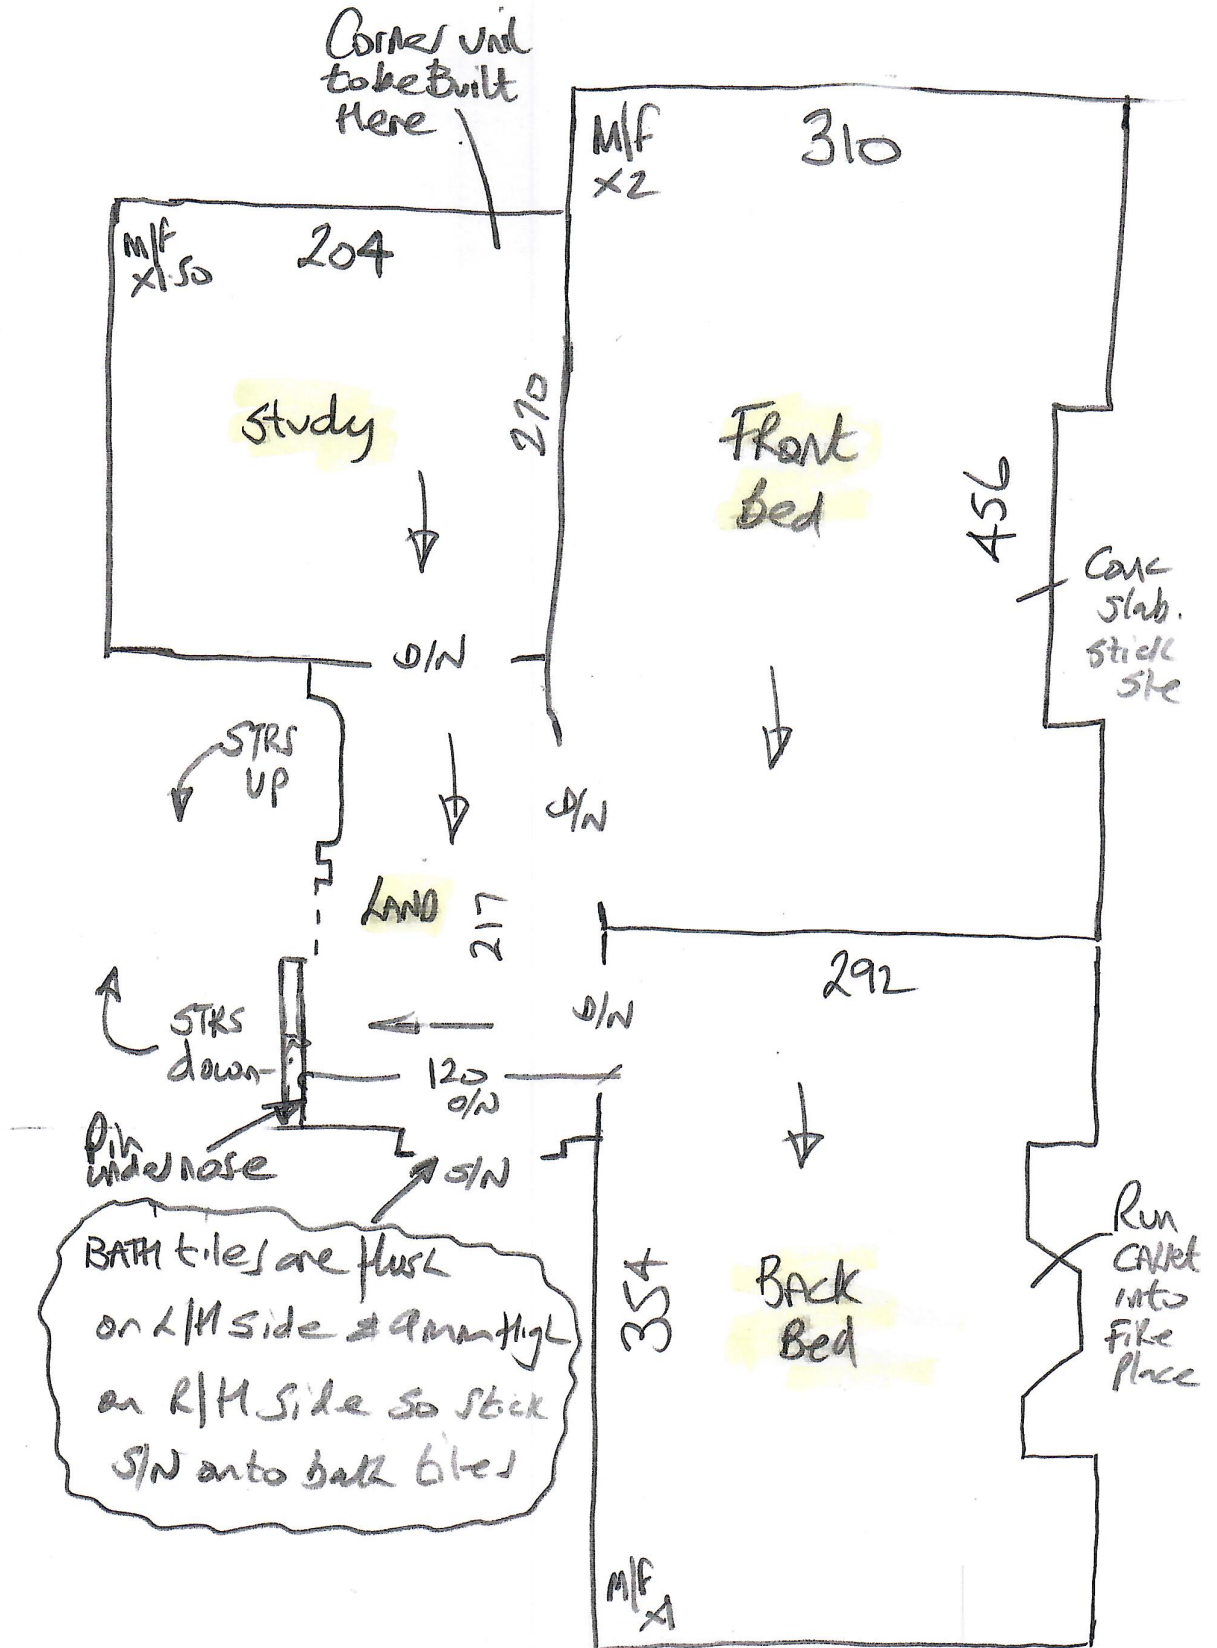 Corner unit
to be Built
Here
M/F
x2
310
M/F
x1.50
204
Study
270
Front
Bed
456
Conc
Slab.
Stick
D/N
STRS
UP
D/N
LAND
217
292
D/N
STRS
down
120
O/N
Pin
under nose
S/N
BATH tiles are flush
on L/H side & 9mm High
on R/H Side So Stick
S/N onto bath tiles
354
Back
Bed
Run
CARPet
into
Fire
Place
M/F